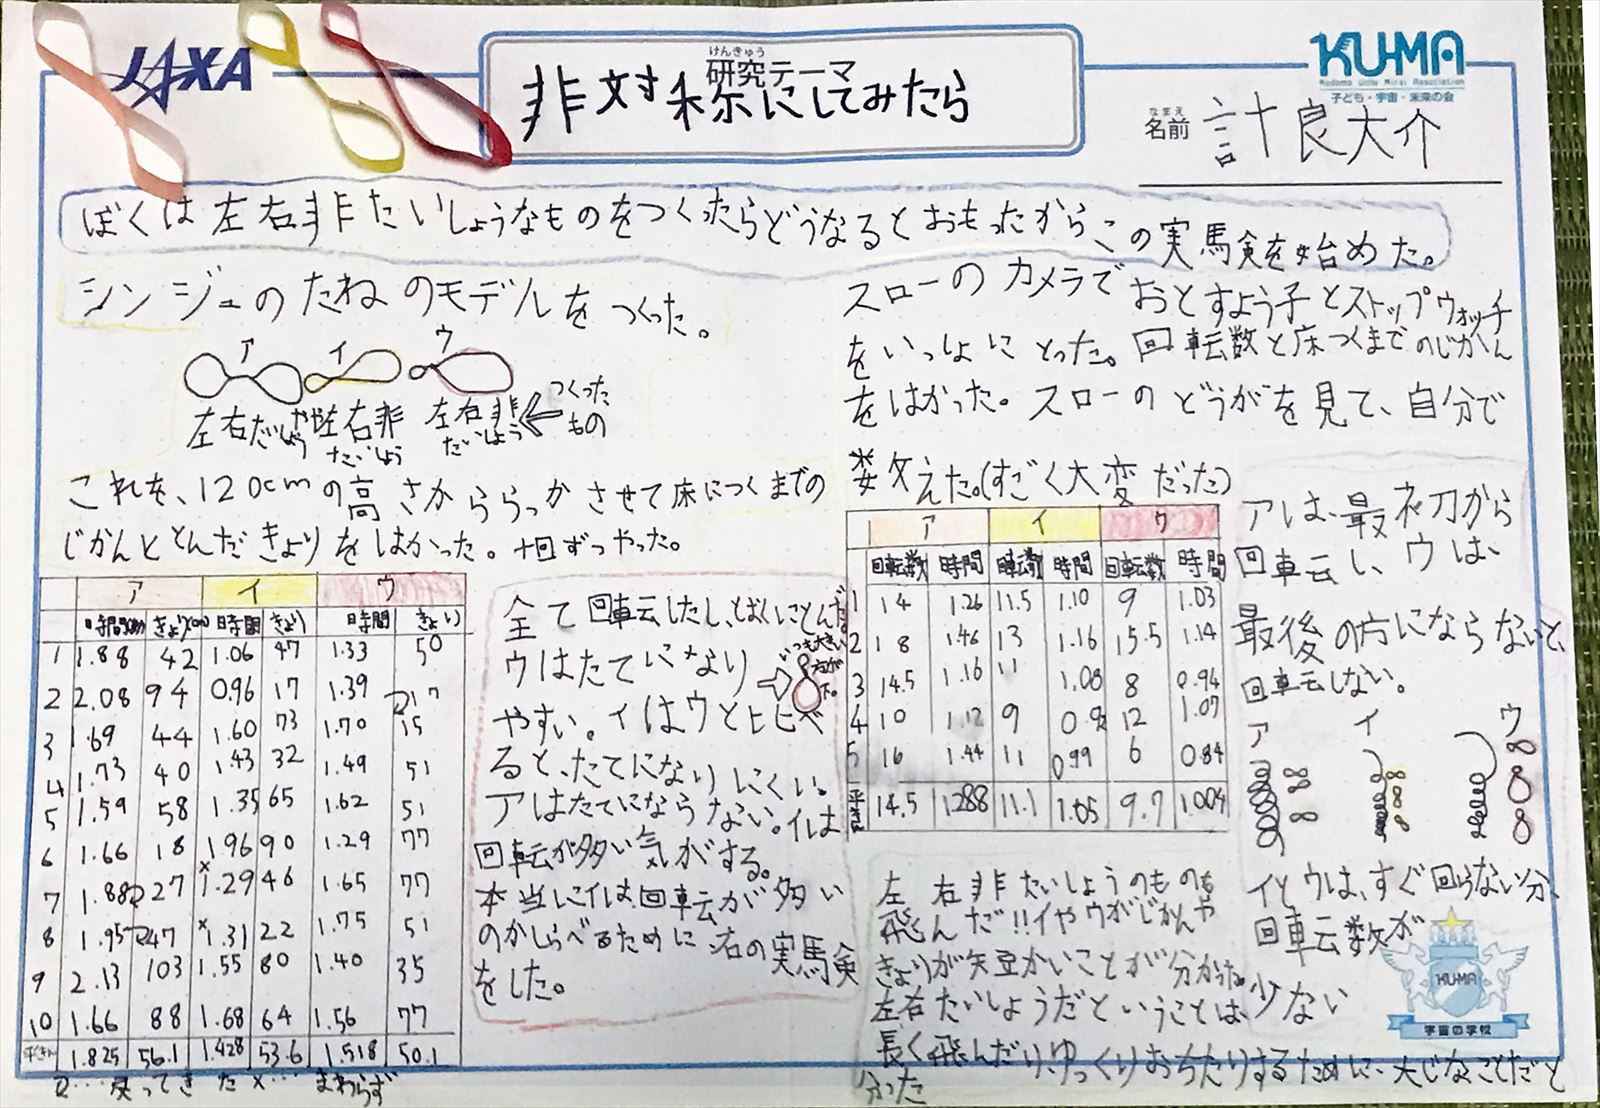 JAXA
けんきゅう
研究テーマ
非対称にしてみたら
KU-MA
Kodomo Uchu Mirai Association
子ども・宇宙・未来の会
なまえ
名前 計良大介
ぼくは左右非たいしょうなものをつくったらどうなるとおもったからこの実験を始めた。
シンジュのたねのモデルをつくった。
ア イ ウ
左右だいしょう やや左右非たいしょう 左右非たいしょう ⇐ つくったもの
これを、120cmの高さかららっかさせて床につくまでの
じかんととんだきょりをはかった。十回ずつやった。
ア イ ウ
時間(秒) きょり(cm) 時間 きょり 時間 きょり
1 1.88 42 1.06 47 1.33 50
2 2.08 94 0.96 17 1.39 17
3 1.69 44 1.60 73 1.70 15
4 1.73 40 1.43 32 1.49 51
5 1.59 58 1.35 65 1.62 51
6 1.66 18 1.96 90 1.29 77
7 1.88 27 ×1.29 46 1.65 77
8 1.95 47 ×1.31 22 1.75 51
9 2.13 103 1.55 80 1.40 35
10 1.66 88 1.68 64 1.56 77
1.825 56.1 1.428 53.6 1.518 50.1
…戻ってきた ×…まわらず
全て回転したし、とばくにとんだ。
ウはたてになり
⇨ いつも大きい方が下。
やすい。イはウとヒヒべ
ると、たてになりにくい。
アはたてにならない。イは
回転が多い気がする。
本当にイは回転が多い
のかしらべるために右の実験
をした。
スローのカメラでおとすよう子とストップウォッチ
をいっしょにとった。回転数と床つくまでのじかん
をはかった。スローのどうがを見て、自分で
数えた。(すごく大変だった)
ア イ ウ
回転数 時間 回転数 時間 回転数 時間
1 14 1.26 11.5 1.10 9 1.03
2 18 1.46 13 1.16 15.5 1.14
3 14.5 1.16 11 1.08 8 0.94
4 10 1.12 9 12 1.07
5 16 1.44 11 0.99 6 0.84
平均 14.5 1.288 11.1 1.05 9.7 1.004
アは、最初から
回転し、ウは、
最後の方にならないと、
回転しない。
ア イ ウ
イとウは、すぐ回らない分、
回転数が
少ない
左右非たいしょうのものも
飛んだ!!イやウがじかんや
きょりが短かいことが分かった。
左右たいしょうだということは、
長く飛んだり、ゆっくりおちたりするために、大じなことだと
分った
KU-MA
宇宙の学校